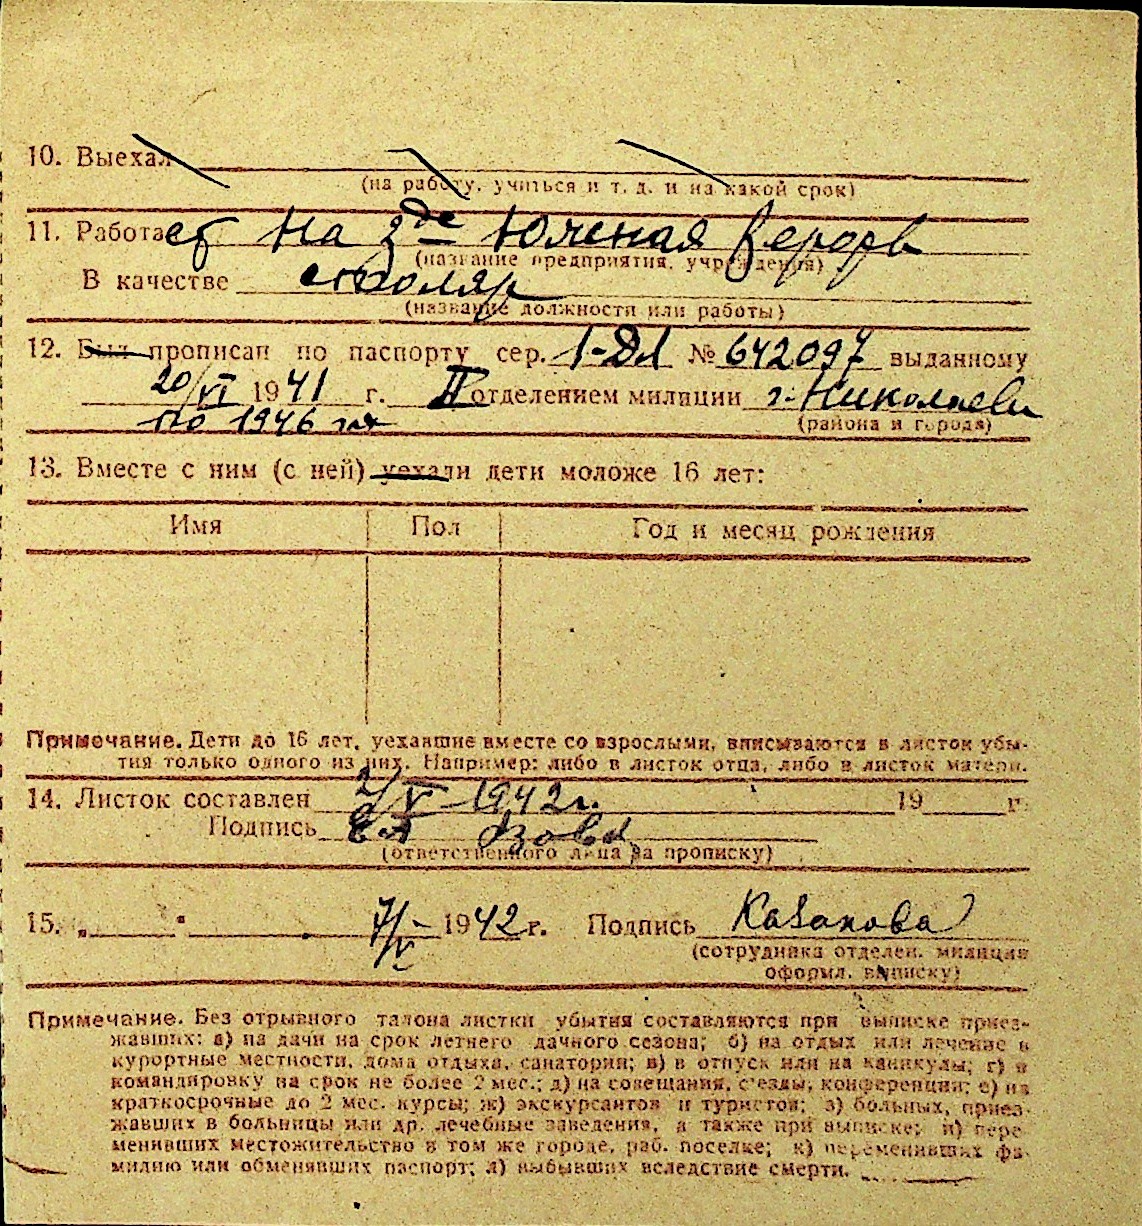 10. Выехал
(на работу, учиться и т. д. и на какой срок)
11. Работает На Зде Южная Верфь
(название предприятия, учреждения)
В качестве столяр
(название должности или работы)
12. Был прописан по паспорту сер. 1-ДЛ № 642097 выданному
20/VI 1941 г. II отделением милиции г. Николаева
по 1946 г
(района и города)
13. Вместе с ним (с ней) уехали дети моложе 16 лет:
Имя Пол Год и месяц рождения
Примечание. Дети до 16 лет, уехавшие вместе со взрослыми, вписываются в листок убы-
тия только одного из них. Например: либо в листок отца, либо в листок матери.
14. Листок составлен 2/V 1942 г. 19 г.
Подпись
(ответственного лица за прописку)
15. „ " 7/V 1942 г. Подпись Казакова
(сотрудника отделен. милиции
оформл. выписку)
Примечание. Без отрывного талона листки убытия составляются при выписке приез-
жавших: а) на дачи на срок летнего дачного сезона; б) на отдых или лечение в
курортные местности, дома отдыха, санатории; в) в отпуск или на каникулы; г) в
командировку на срок не более 2 мес.; д) на совещания, съезды, конференции; е) на
краткосрочные до 2 мес. курсы; ж) экскурсантов и туристов; з) больных, приез-
жавших в больницы или др. лечебные заведения, а также при выписке; и) пере-
менивших местожительство в том же городе, раб. поселке; к) переменивших фа-
милию или обменявших паспорт; л) выбывших вследствие смерти.